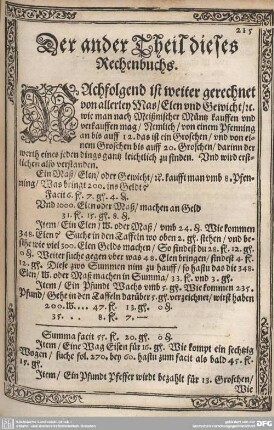 215
Der ander Theil dieses
Rechenbuchs.
NAchfolgend ist weiter gerechnet
von allerley Mas/ Elen vnd Gewicht/ ꝛc.
wie man nach Meißnischer Müntz kauffen vnd
verkauffen mag/ Nemlich/ von einem Pfenning
an bis auff 12. das ist ein Groschen/ vnd von ei-
nem Groschen bis auff 20. Groschen/ darinn der
werth eines jeden dings gantz leichtlich zu finden. Vnd wird erst-
lichen also verstanden.
Ein Maß/ Elen/ oder Gewicht/ ꝛc. kaufft man vmb 8. Pfen-
ning/ Was bringt 200. ins Geldt?
Facit 6. f. 7. gf. 4. ₰.
Vnd 1000. Elen oder Maß/ machen an Geld
31. f. 15. gf. 8. ₰.
Item/ Ein Elen/ W. oder Maß/ vmb 24. ₰. Wie kommen
348. Elen? Suche in den Taffeln wo oben 2. gf. stehen/ vnd be-
sihe wie viel 300. Elen Gelds machen/ So findest du 28. f. 12. gf.
0 ₰. Weiter suche gegen vber was 48. Elen bringen/ findest 4. f.
12. gf. Diese zwo Summen nim zu hauff/ so hastu das die 348.
Elen/ W. oder Maß machen in Summa/ 33. f. vnd 3. gf.
Item/ Ein Pfundt Wachs vmb 5. gf. Wie kommen 235.
Pfund/ Gehe in den Taffeln darüber 5. gf. verzeichnet/ wirst haben
200. W.... 47. f. 13. gf. 0 ₰
35. . . 8. f. 7. —
Summa facit 55. f. 20. gf. 0 ₰.
Item/ Eine Wag Eisen für 16. gf. Wie kompt ein sechtzig
Wagen/ suche fol. 270. bey 60. hastu zum facit als bald 45. f.
15. gf.
Item/ Ein Pfundt Pfeffer wirdt bezahlt für 13. Groschen/
Wie